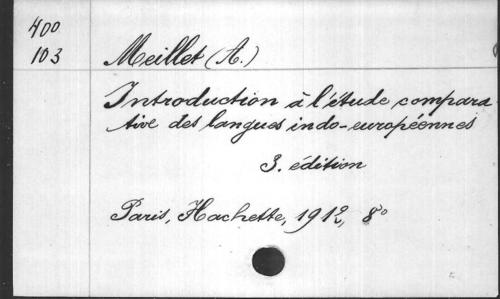 400
103
Meillet (A.)
Introduction à l'étude compara
tive des langues indo-européennes
3. édition
Paris, Hachette, 1912, 8°